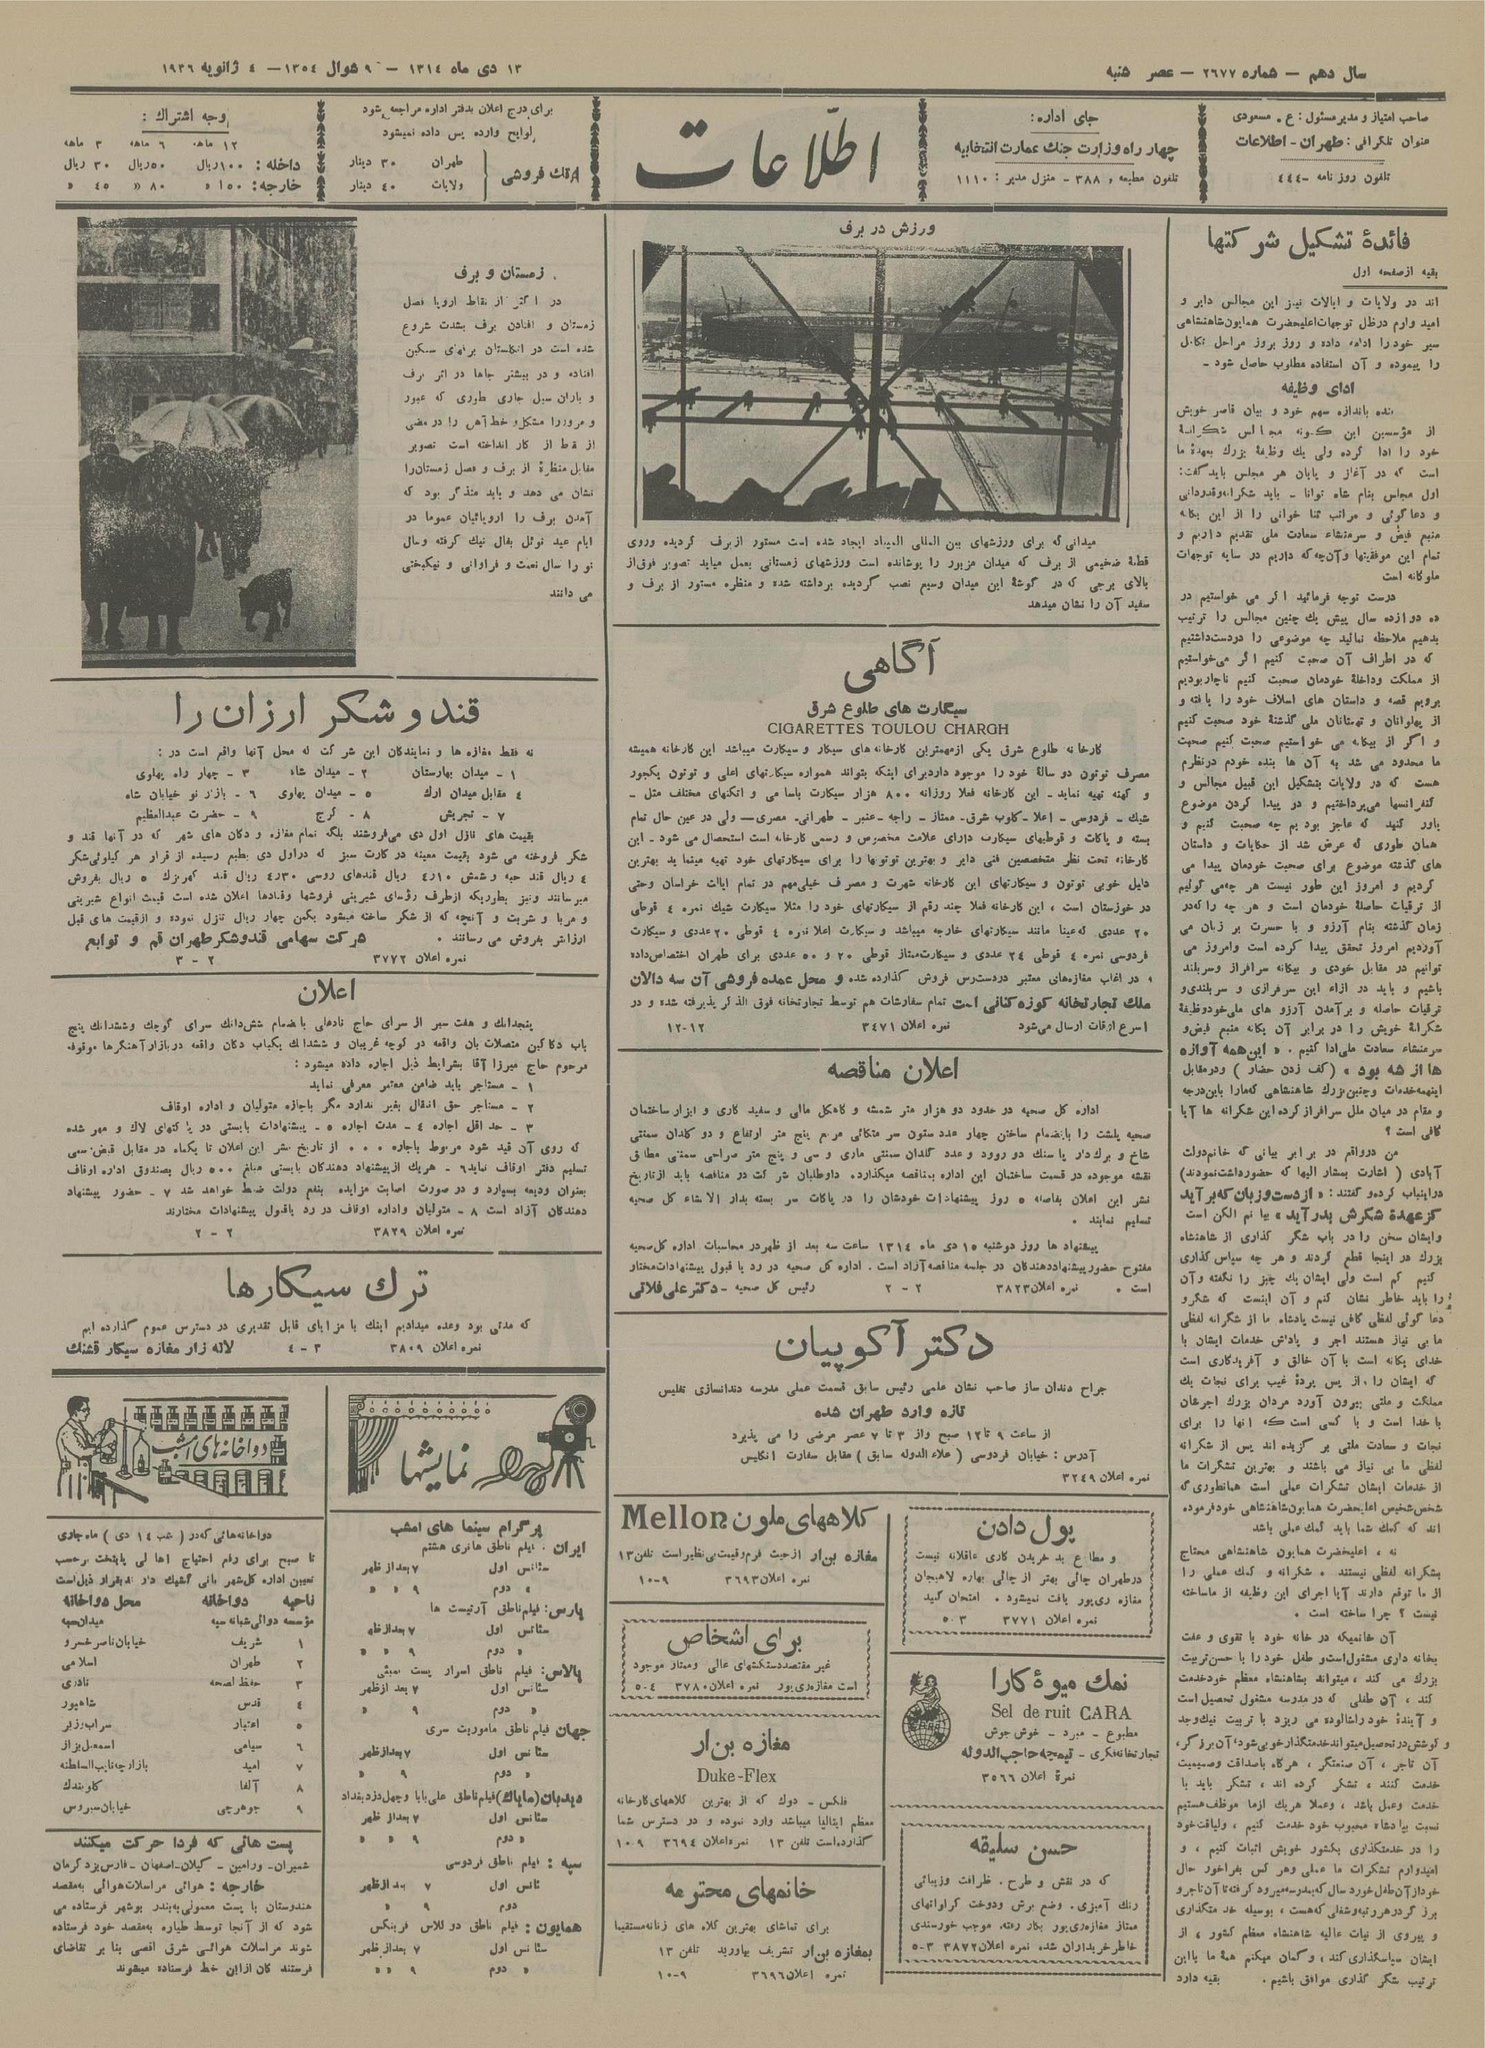 سال دهم — شماره ۲۶۷۷ — عصر شنبه
۱۳ دی ماه ۱۳۱۴ — ۹ شوال ۱۳۵۴ — ۴ ژانویه ۱۹۳۶
صاحب امتیاز و مدیر مسئول : ع . مسعودی
عنوان تلگرافی : طهران - اطلاعات
تلفون روزنامه - ۴۴۴
جای اداره :
چهار راه وزارت جنگ عمارت انتخابیه
تلفون مطبعه ۳۸۸ - منزل مدیر : ۱۱۱۰
اطلاعات
برای درج اعلان بدفتر اداره مراجعه شود
لوایح وارده پس داده نمیشود
تک فروشی
طهران ۳۰ دینار
ولایات ۴۰ دینار
وجه اشتراك :
۱۲ ماهه ۶ ماهه ۳ ماهه
داخله : ۱۰۰ ریال ۵۰ ریال ۳۰ ریال
خارجه : ۱۵۰ » ۸۰ » ۴۵ »
فائدهٔ تشکیل شرکتها
بقیه از صفحه اول
اند در ولایات و ایالات نیز این مجالس دایر و
امید وارم در ظل توجهات اعلیحضرت همایون شاهنشاهی
سیر خود را ادامه داده و روز بروز مراحل تکامل
را پیموده و آن استفاده مطلوب حاصل شود —
ادای وظیفه
بنده باندازه سهم خود و بیان قاصر خویش
از مؤسسین این گونه مجالس شکرانهٔ
خود را ادا کرده ولی یك وظیفهٔ بزرك بعهدهٔ ما
است که در آغاز و پایان هر مجلس باید گفت :
اول مجلس بنام شاه توانا - باید شکرانه وقدردانی
و دعا گوئی و مراتب ثنا خوانی را از این یگانه
منبع فیض و سرمنشاء سعادت ملی تقدیم داریم و
تمام این موفقیتها و آن چه که داریم در سایه توجهات
ملوکانه است
درست توجه فرمائید اگر می خواستیم در
ده دوازده سال پیش یك چنین مجالس را ترتیب
بدهیم ملاحظه نمائید چه موضوعی را در دست داشتیم
که در اطراف آن صحبت کنیم اگر می خواستیم
از مملکت و داخلهٔ خودمان صحبت کنیم ناچار بودیم
برویم قصه و داستان های اسلاف خود را یافته و
از پهلوانان و تهمتنان ملی گذشتهٔ خود صحبت کنیم
و اگر از بیگانه می خواستیم صحبت کنیم صحبت
ما محدود می شد به آن ها بنده خودم در نظرم
هست که در ولایات بتشکیل این قبیل مجالس و
کنفرانسها میپرداختیم و در پیدا کردن موضوع
باور کنید که عاجز بودیم چه صحبت کنیم و
همان طوری که عرض شد از حکایات و داستان
های گذشته موضوع برای صحبت خودمان پیدا می
کردیم و امروز این طور نیست هر چه می گوئیم
از ترقیات حاصلهٔ خودمان است و هر چه را که در
زمان گذشته بنام آرزو و با حسرت بر زبان می
آوردیم امروز تحقق پیدا کرده است و امروز می
توانیم در مقابل خودی و بیگانه سرافراز و سربلند
باشیم و باید در ازاء این سرفرازی و سربلندی و
ترقیات حاصله و برآمدن آرزو های ملی خود وظیفهٔ
شکرانهٔ خویش را در برابر آن یگانه منبع فیض و
سرمنشاء سعادت ملی ادا کنیم . « این همه آوازه
ها از شه بود » ( کف زدن حضار ) و در مقابل
اینهمه خدمات و چنین بزرك شاهنشاهی که ما را باین درجه
و مقام در میان ملل سرافراز کرده این شکرانه ها آیا
کافی است ؟
من در واقع در برابر بیانی که خانم دولت
آبادی ( اشارت بمشار الیها که حضور داشت نمودند )
در اینباب کرده و گفتند : « از دست و زبان که بر آید
کز عهدهٔ شکرش بدر آید » بیانم الکن است
و ایشان سخن را در باب شکر گذاری از شاهنشاه
بزرك در اینجا قطع کردند و هر چه سپاس گذاری
کنیم کم است ولی ایشان یك چیز را نگفته و آن
را باید خاطر نشان کنم و آن اینست که شکر و
دعا گوئی لفظی کافی نیست پادشاه ما از شکرانه لفظی
ما بی نیاز هستند اجر و پاداش خدمات ایشان با
خدای یگانه است با آن خالق و آفریدگاری است
که ایشان را از پس پردهٔ غیب برای نجات یك
مملکت و ملتی بیرون آورد مردان بزرك اجرشان
با خدا است و با کسی است که آنها را برای
نجات و سعادت ملتی بر گزیده اند پس از شکرانه
لفظی ما بی نیاز می باشند و بهترین تشکرات ما
از خدمات ایشان تشکرات عملی است همانطوری که
شخص شخیص اعلیحضرت همایون شاهنشاهی خود فرموده
اند که کمك شما باید کمك عملی باشد
نه ، اعلیحضرت همایون شاهنشاهی محتاج
بشکرانه لفظی نیستند . شکرانه و کمك عملی را
از ما توقع دارند آیا اجرای این وظیفه از ما ساخته
نیست ؟ چرا ساخته است .
آن خانمیکه در خانه خود با تقوی و عفت
بخانه داری مشغول است و طفل خود را با حسن تربیت
بزرك می کند ، میتواند بشاهنشاه معظم خود خدمت
کند ، آن طفلی که در مدرسه مشغول تحصیل است
و آیندهٔ خود را شالوده می ریزد با تربیت نیك وجد
و کوشش در تحصیل میتواند خدمتگذار خوبی شود ، آن برزگر ،
آن تاجر ، آن صنعتگر ، هرگاه با صداقت و صمیمیت
خدمت کنند ، تشکر کرده اند ، تشکر باید با
خدمت و عمل باشد ، وعملا هریك از ما موظف هستیم
نسبت بپادشاه محبوب خود خدمت کنیم ، و لیاقت خود
را در خدمتگذاری بکشور خویش اثبات کنیم ، و
امیدوارم تشکرات ما عملی و هر کس بفراخور حال
خود از آن طفل خورد سال که بمدرسه میرود گرفته تا آن تاجر و
برزگر در هر رتبه و شغلی که هست ، بوسیله خدمتگذاری
و پیروی از نیات عالیه شاهنشاه معظم کشور ، از
ایشان سپاسگذاری کند ، و گمان میکنم همهٔ ما با این
ترتیب شکر گذاری موافق باشیم . بقیه دارد
ورزش در برف
میدانی که برای ورزشهای بین المللی المپیاد ایجاد شده است مستور از برف گردیده و روی
قطعهٔ ضخیمی از برف که میدان مزبور را پوشانده است ورزشهای زمستانی بعمل میاید تصویر فوق از
بالای برجی که در گوشهٔ این میدان وسیع نصب گردیده برداشته شده و منظره مستور از برف و
سفید آن را نشان میدهد
آگاهی
سیگارت های طلوع شرق
CIGARETTES TOULOU CHARGH
کارخانه طلوع شرق یکی از مهمترین کارخانه های سیکار و سیکارت میباشد این کارخانه همیشه
مصرف توتون دو سالهٔ خود را موجود دارد برای اینکه بتواند همواره سیکارتهای اعلی و توتون یکجور
و کهنه تهیه نماید - این کارخانه فعلا روزانه ۸۰۰ هزار سیکارت باسامی و اتکتهای مختلف مثل -
شیك - فردوسی - اعلا - کلوب شرق - ممتاز - راجه - عنبر - طهرانی - مصری — ولی در عین حال تمام
بسته و پاکات و قوطیهای سیکارت دارای علامت مخصوص و رسمی کارخانه است استحصال می شود . این
کارخانه تحت نظر متخصصین فنی دایر و بهترین توتونها را برای سیکارتهای خود تهیه مینماید بهترین
دلیل خوبی توتون و سیکارتهای این کارخانه شهرت و مصرف خیلی مهم در تمام ایالات خراسان وحتی
در خوزستان است ، این کارخانه فعلا چند رقم از سیکارتهای خود را مثلا سیکارت شیك نمره ٤ قوطی
۲۰ عددی که عینا مانند سیکارتهای خارجه میباشد و سیکارت اعلا نمره ٤ قوطی ۲۰ عددی و سیکارت
فردوسی نمره ٤ قوطی ۲٤ عددی و سیکارت ممتاز قوطی ۲۰ و ۵۰ عددی برای طهران اختصاص داده
و در اغلب مغازه های معتبر در دسترس فروش گذارده شده و محل عمده فروشی آن سه دالان
ملك تجارتخانه کوزه کنانی است تمام سفارشات هم توسط تجارتخانه فوق الذکر پذیرفته شده و در
اسرع اوقات ارسال می شود نمره اعلان ۳٤۷۱ ۱۲-۱۲
اعلان مناقصه
اداره کل صحیه در حدود دو هزار متر شمشه و کاهگل مالی و سفید کاری و ابزار ساختمان
صحیه پلشت را بانضمام ساختن چهار عدد ستون سر متکائی مربع پنج متر ارتفاع و دو گلدان سمنتی
شاخ و برك دار یا سنك دو روود و عدد گلدان سمنتی ماری و سی و پنج متر صراحی سمنتی مطابق
نقشه موجوده در قسمت ساختمان این اداره بمناقصه میگذارد. داوطلبان شرکت در مناقصه باید از تاریخ
نشر این اعلان بفاصله ۵ روز پیشنهادات خودشان را در پاکات سر بسته بدار الانشاء کل صحیه
تسلیم نمایند .
پیشنهاد ها روز دوشنبه ۱۵ دی ماه ۱۳۱٤ ساعت سه بعد از ظهر در محاسبات اداره کل صحیه
مفتوح حضور پیشنهاد دهندگان در جلسه مناقصه آزاد است . اداره کل صحیه در رد یا قبول پیشنهادات مختار
است . نمره اعلان ۳۸۲۳ ۲ - ۲ رئیس کل صحیه - دکتر علی فلاتی
دکتر آکوپیان
جراح دندان ساز صاحب نشان علمی رئیس سابق قسمت عملی مدرسه دندانسازی تفلیس
تازه وارد طهران شده
از ساعت ۹ تا ۱۲ صبح و از ۳ تا ۷ عصر مرضی را می پذیرد
آدرس : خیابان فردوسی ( علاء الدوله سابق ) مقابل سفارت انگلیس
نمره اعلان ۳۲٤۹
پول دادن
و مطاع بد خریدن کاری عاقلانه نیست
در طهران چائی بهتر از چائی بهاره لاهیجان
مغازه ری پور یافت نمیشود . امتحان کنید
نمره اعلان ۳۷۷۱ ۵-۳
نمك میوهٔ کارا
Sel de ruit CARA
مطبوع - مبرد - خوش جوش
تجارتخانه فکری - تیمچه حاجب الدوله
نمرهٔ اعلان ۳۵۶۶
حسن سلیقه
که در نقش و طرح . ظرافت و زیبائی
رنك آمیزی . وضع برش و دوخت کراواتهای
ممتاز مغازه ری پور بکار رفته . موجب خورسندی
خاطر خریداران شده نمره اعلان ۳۸۷۲ ۵-۳
کلاههای ملون Mellon
مغازه بن ار از حیث فرم و قیمت بی نظیر است تلفن ۱۳
نمره اعلان ۳۶۹۳ ۱۰-۹
برای اشخاص
غیر مقتصد دستکشهای عالی و ممتاز موجود
است مغازه ری پور نمره اعلان ۳۷۸۰ ۵-٤
مغازه بن ار
Duke-Flex
فلکس - دوك که از بهترین کلاههای کارخانه
معظم ایتالیا میباشد وارد نموده و در دسترس شما
گذارده است تلفن ۱۳ نمره اعلان ۳۶۹٤ ۱۰-۹
خانمهای محترمه
برای تماشای بهترین کلاه های زنانه مستقیما
بمغازه بن ار تشریف بیاورید تلفن ۱۳
نمره اعلان ۳۶۹۶ ۱۰-۹
زمستان و برف
در اکثر از نقاط اروپا فصل
زمستان و افتادن برف بشدت شروع
شده است در انگلستان برفهای سنگین
افتاده و در بیشتر جاها در اثر برف
و باران سیل جاری طوری که عبور
و مرور را مشکل و خط آهن را در بعضی
از نقاط از کار انداخته است تصویر
مقابل منظرهٔ از برف و فصل زمستان را
نشان می دهد و باید متذکر بود که
آمدن برف را اروپائیان عموما در
ایام عید نوئل بفال نیك گرفته و سال
نو را سال نعمت و فراوانی و نیکبختی
می دانند
قند و شکر ارزان را
نه فقط مغازه ها و نمایندگان این شرکت که محل آنها واقع است در :
۱ - میدان بهارستان ۲ - میدان شاه ۳ - چهار راه پهلوی
٤ مقابل میدان ارك ۵ - میدان پهلوی ۶ - بازار نو خیابان شاه
۷ - تجریش ۸ - کرج ۹ - حضرت عبدالعظیم
بقیمت های نازل اول دی می فروشند بلکه تمام مغازه و دکان های شهر که در آنها قند و
شکر فروخته می شود بقیمت معینه در کارت سبز که در اول دی بطبع رسیده از قرار هر کیلوئی شکر
٤ ریال قند حبه و شمش ٤/۱۰ ریال قندهای روسی ٤/۳۰ ریال قند کهریزك ۵ ریال بفروش
میرسانند و نیز بطوریکه از طرف رؤسای شیرینی فروشها و قنادها اعلان شده است قیمت انواع شیرینی
و مربا و شربت و آنچه که از شکر ساخته میشود یکمن چهار ریال تنزل نموده و از قیمت های قبل
ارزانتر بفروش می رسانند . شرکت سهامی قند و شکر طهران قم و توابع
نمره اعلان ۳۷۷۲ ۲ - ۳
اعلان
پنجدانك و هفت سیر از سرای حاج نادعلی بانضمام ششدانك سرای کوچك و ششدانك پنج
باب دکاکین متصلات بآن واقعه در کوچه غریبان و ششدانك یکباب دکان واقعه در بازار آهنگرها موقوفه
مرحوم حاج میرزا آقا بشرایط ذیل اجاره داده میشود :
۱ - مستأجر باید ضامن معتبر معرفی نماید
۲ - مستاجر حق انتقال بغیر ندارد مگر باجازه متولیان و اداره اوقاف
۳ - حد اقل اجاره ٤ - مدت اجاره ۵ - پیشنهادات بایستی در پاکتهای لاك و مهر شده
که روی آن قید شود مربوط باجاره ... از تاریخ نشر این اعلان تا یکماه در مقابل قبض رسمی
تسلیم دفتر اوقاف نماید ۶ - هریك از پیشنهاد دهندگان بایستی مبلغ ۵۰۰ ریال بصندوق اداره اوقاف
بعنوان ودیعه بسپارد و در صورت اصابت مزایده بنفع دولت ضبط خواهد شد ۷ - حضور پیشنهاد
دهندگان آزاد است ۸ - متولیان و اداره اوقاف در رد یا قبول پیشنهادات مختارند
نمره اعلان ۳۸۲۹ ۲ - ۲
ترك سیکارها
که مدتی بود وعده میدادیم اینك با مزایای قابل تقدیری در دسترس عموم گذارده ایم
نمره اعلان ۳۸۰۹ ۳ - ٤ لاله زار مغازه سیکار قشنك
نمایشها
پرگرام سینما های امشب
ایران : فیلم ناطق هانری هشتم
سئانس اول ۷ بعد از ظهر
» دوم ۹ » »
پارس : فیلم ناطق آرتیست ها
سئانس اول ۷ بعد از ظهر
» دوم ۹ » »
پالاس : فیلم ناطق اسرار پست بمبئی
سئانس اول ۷ بعد از ظهر
» دوم ۹ »
جهان فیلم ناطق ماموریت سری
سئانس اول ۷ بعد از ظهر
» دوم ۹ »
دیدبان ( مایاك ) فیلم ناطق علی بابا و چهل دزد بغداد
سئانس اول ۷ بعد از ظهر
» دوم ۹ » »
سپه : فیلم ناطق فردوسی
سئانس اول ۷ بعد از ظهر
» دوم ۹ »
همایون : فیلم ناطق دوگلاس فربنکس
سئانس اول ۷ بعد از ظهر
» دوم ۹ » »
دواخانه های امشب
دواخانه هائی که در ( شب ۱٤ دی ) ماه جاری
تا صبح برای رفع احتیاج اهالی پایتخت برحسب
تعیین اداره کل شهربانی کشیك دارند بقرار ذیل است
ناحیه دواخانه محل دواخانه
مؤسسه دوائی شبانه سپه میدان سپه
۱ شریف خیابان ناصر خسرو
۲ طهران اسلامی
۳ حفظ الصحه نادری
٤ قدس شاهپور
۵ اعتبار سراب وزیر
۶ سیامی اسمعیل بزاز
۷ امید بازارچه نایب السلطنه
۸ آلفا کلوبندك
۹ جوهرچی خیابان سیروس
پست هائی که فردا حرکت میکنند
شمیران - ورامین - گیلان - اصفهان - فارس یزد کرمان
خارجه : هوائی مراسلات هوائی بمقصد
هندوستان با پست معمولی به بندر بوشهر فرستاده می
شود که از آنجا توسط طیاره بمقصد خود فرستاده
شوند مراسلات هوائی شرق اقصی بنا بر تقاضای
فرستندگان از این خط فرستاده میشوند